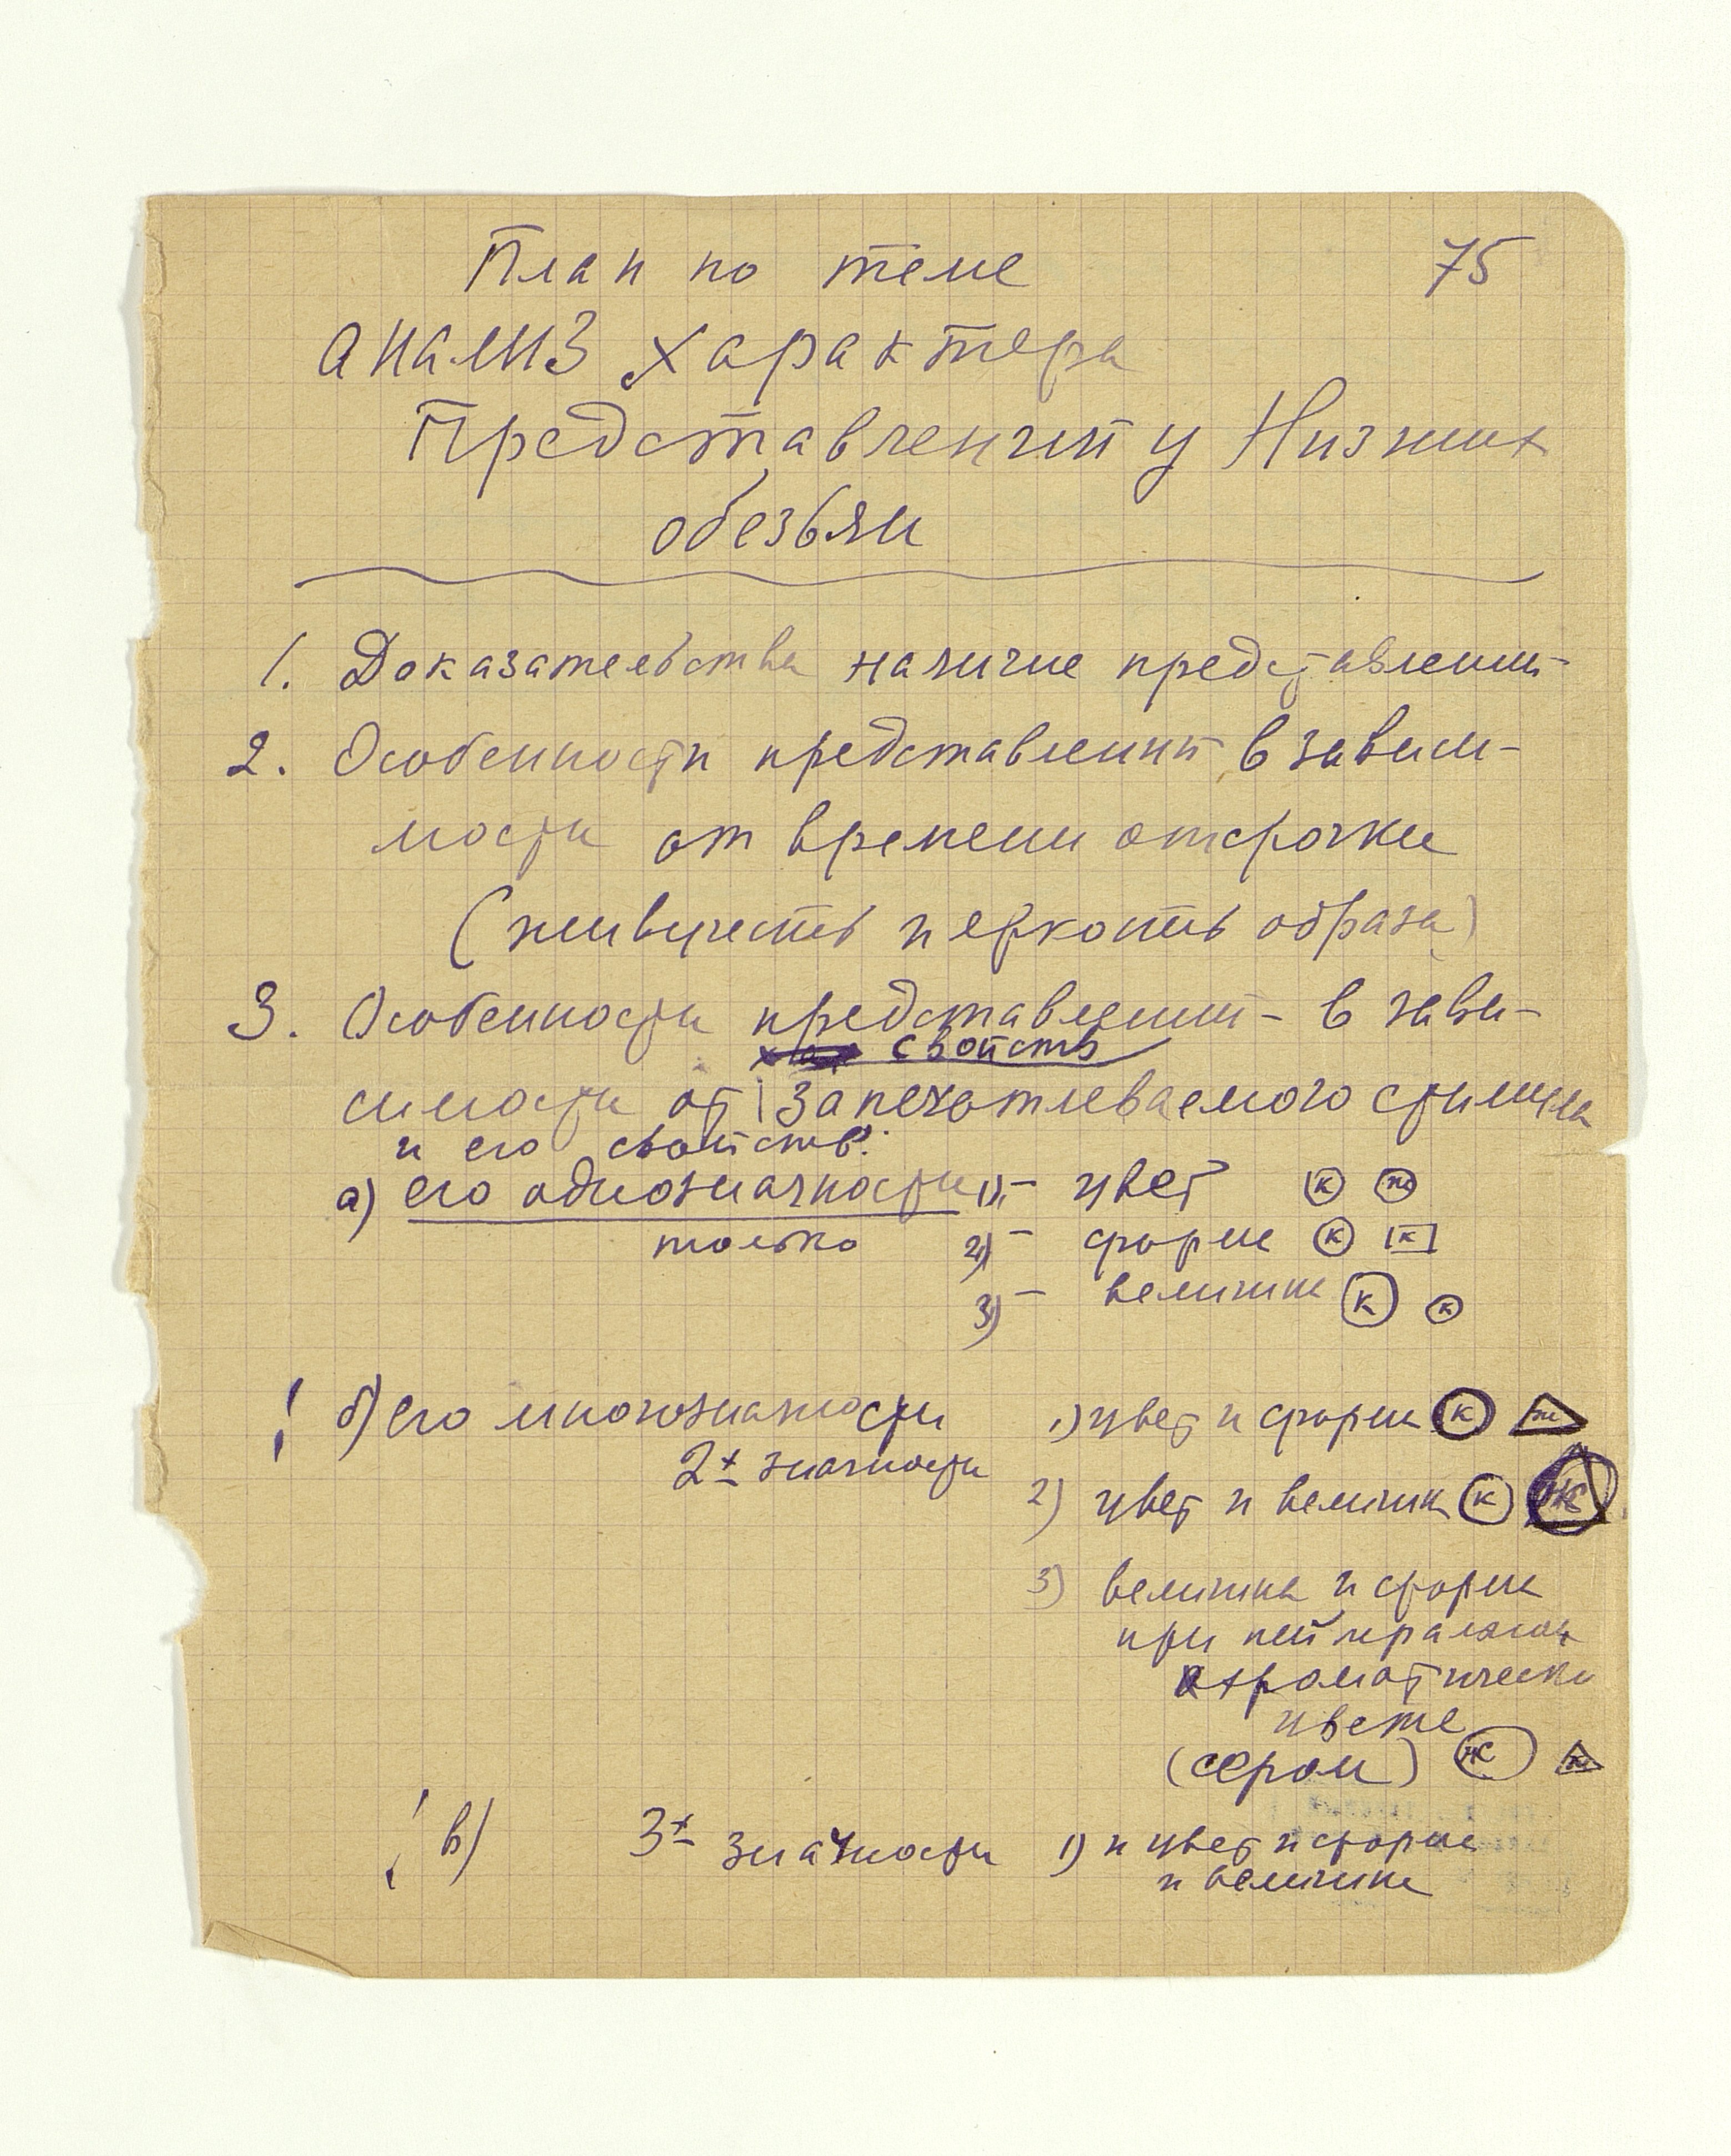 План по теме 75
анализ характера
Представлений у Низших
обезьян
1. Доказательства наличие представлений
2. Особенности представлений в зависи-
мости от времени отсрочки
(живучесть и яркость образа)
3. Особенности представлений в зави-
свойств
симости от запечатлеваемого стимула
и его свойств:
а) его однозначности 1) – цвет к ж
только 2) – форме к к
3) – величине к к
! б) его многозначности 1) цвет и форме к ж
2х значности 2) цвет и величине к ж
3) величине и форме
при нейтральном
ахроматическом
цвете
(сером) ж ж
! в) 3х значности 1) и цвет и форме
и величине